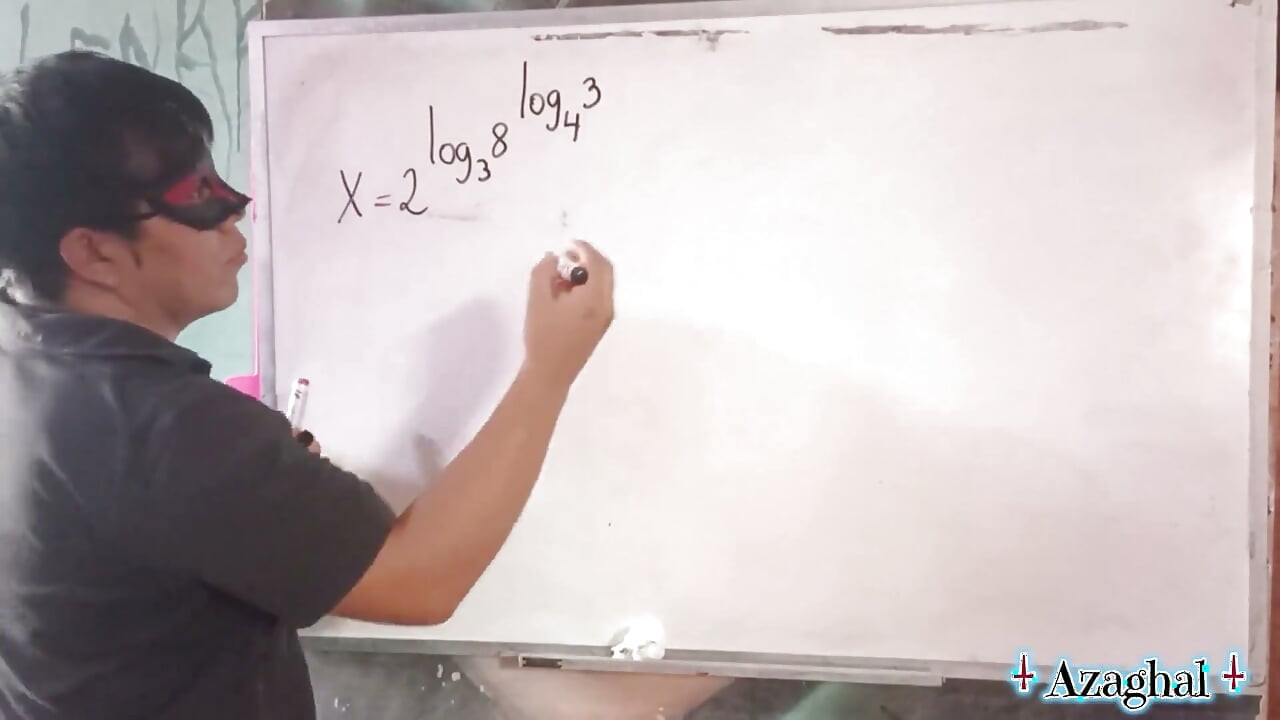 X = 2^{log_3 8^{log_4 3}}
‡ Azaghal ‡